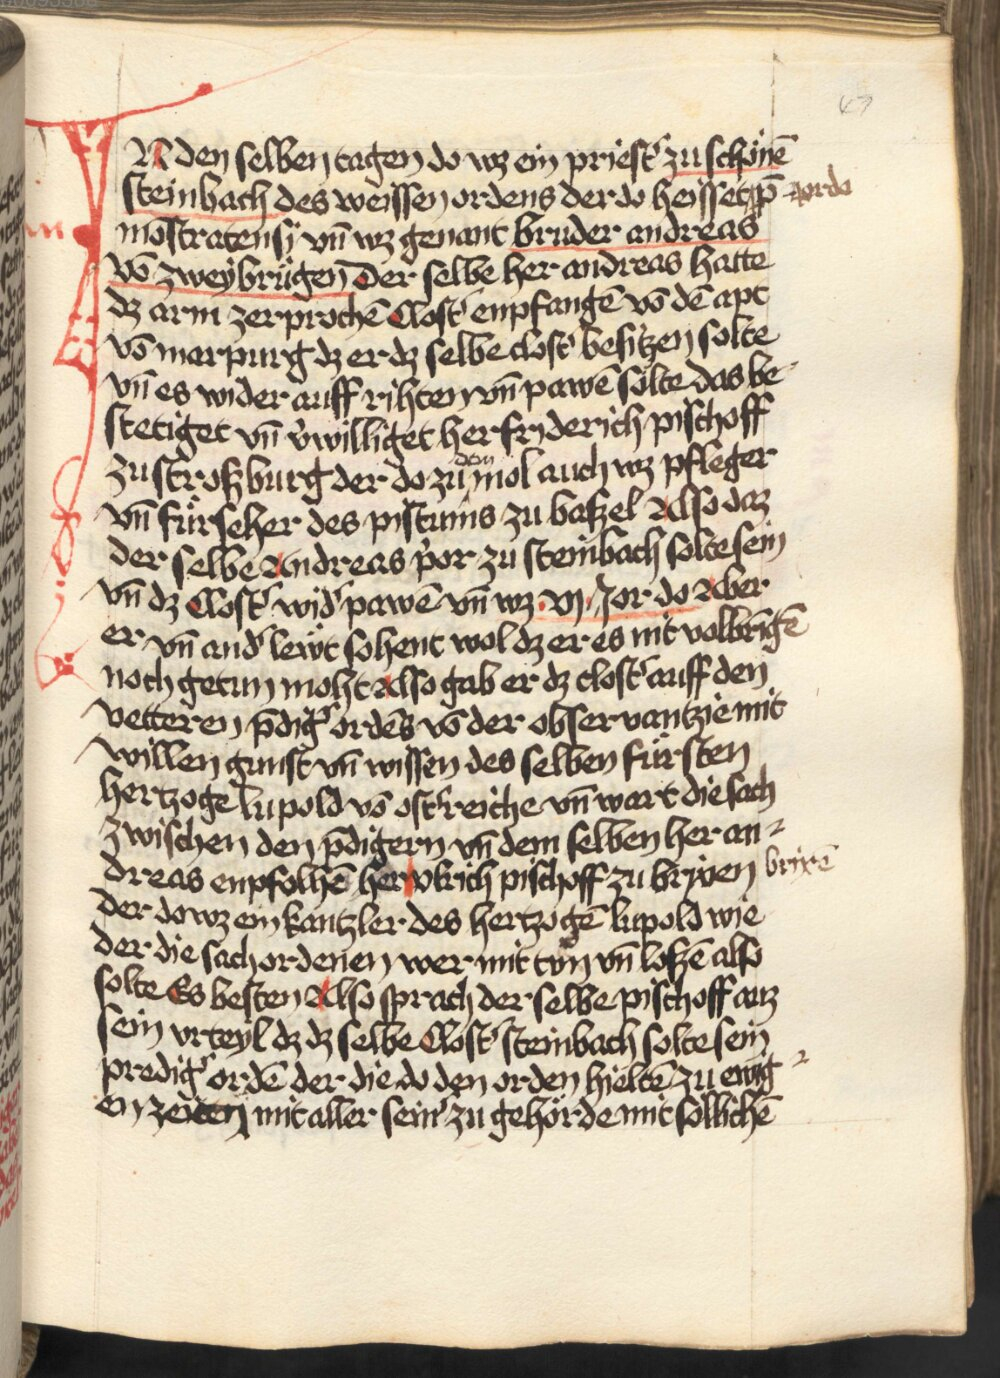 67
IN den selben tagen do wz ein priest᾽ zu schönē
steinbach des weissen ordens der do heisset p̄
orde
mōstratensy vn̄ wz genant bruder andreas
vō zweybrügen Der selbe her andreas hatte
dz arm zerprochē Clost᾽ enpfangē vō dē apt
vō marpurg dz er dz selbe clost᾽ besitzen solte
vn̄ es wider auff rihten vn̄ pawē solte das be-
stetiget vn̄ v᾽williget her friderich pischoff
zu stroßburg der do zu dem mol auch wz pfleger
vn̄ fürseher des pistums zu baßel Also daz
der selbe Andreas p᾽or zu steinbach solte sein
vn̄ dz Clost᾽ wid᾽ pawē vn̄ wz · vj · Jor do Aber
er vn̄ and᾽ lewt sohent wol dz er es nit volbrīgē
noch getun moht Also gab er dz clost᾽ auff den
vetteren p̄dig᾽ ordēs vō der observantzie mit
willen gunst vn̄ wissen des selben fürsten
hertzoge lupold vō ost᾽reiche vn̄ wart die sach
zwischen den p̄digern vn̄ dem selben her an-
dreas enpfolhē her vlrich pischoff zu brixen
brixē
der do wz ein kantzler des hertzogē lupold wie
der die sach ordenen wer mit tūn vn̄ loßē also
solte Es besten Also sprach der selbe pischoff auz
sein vrteyl dz dz selbe Clost᾽ steinbach solte sein
predig᾽ ordē der die do den orden hieltē zu ewig-
en zeiten mit aller sein᾽ zu gehörde mit söllichē